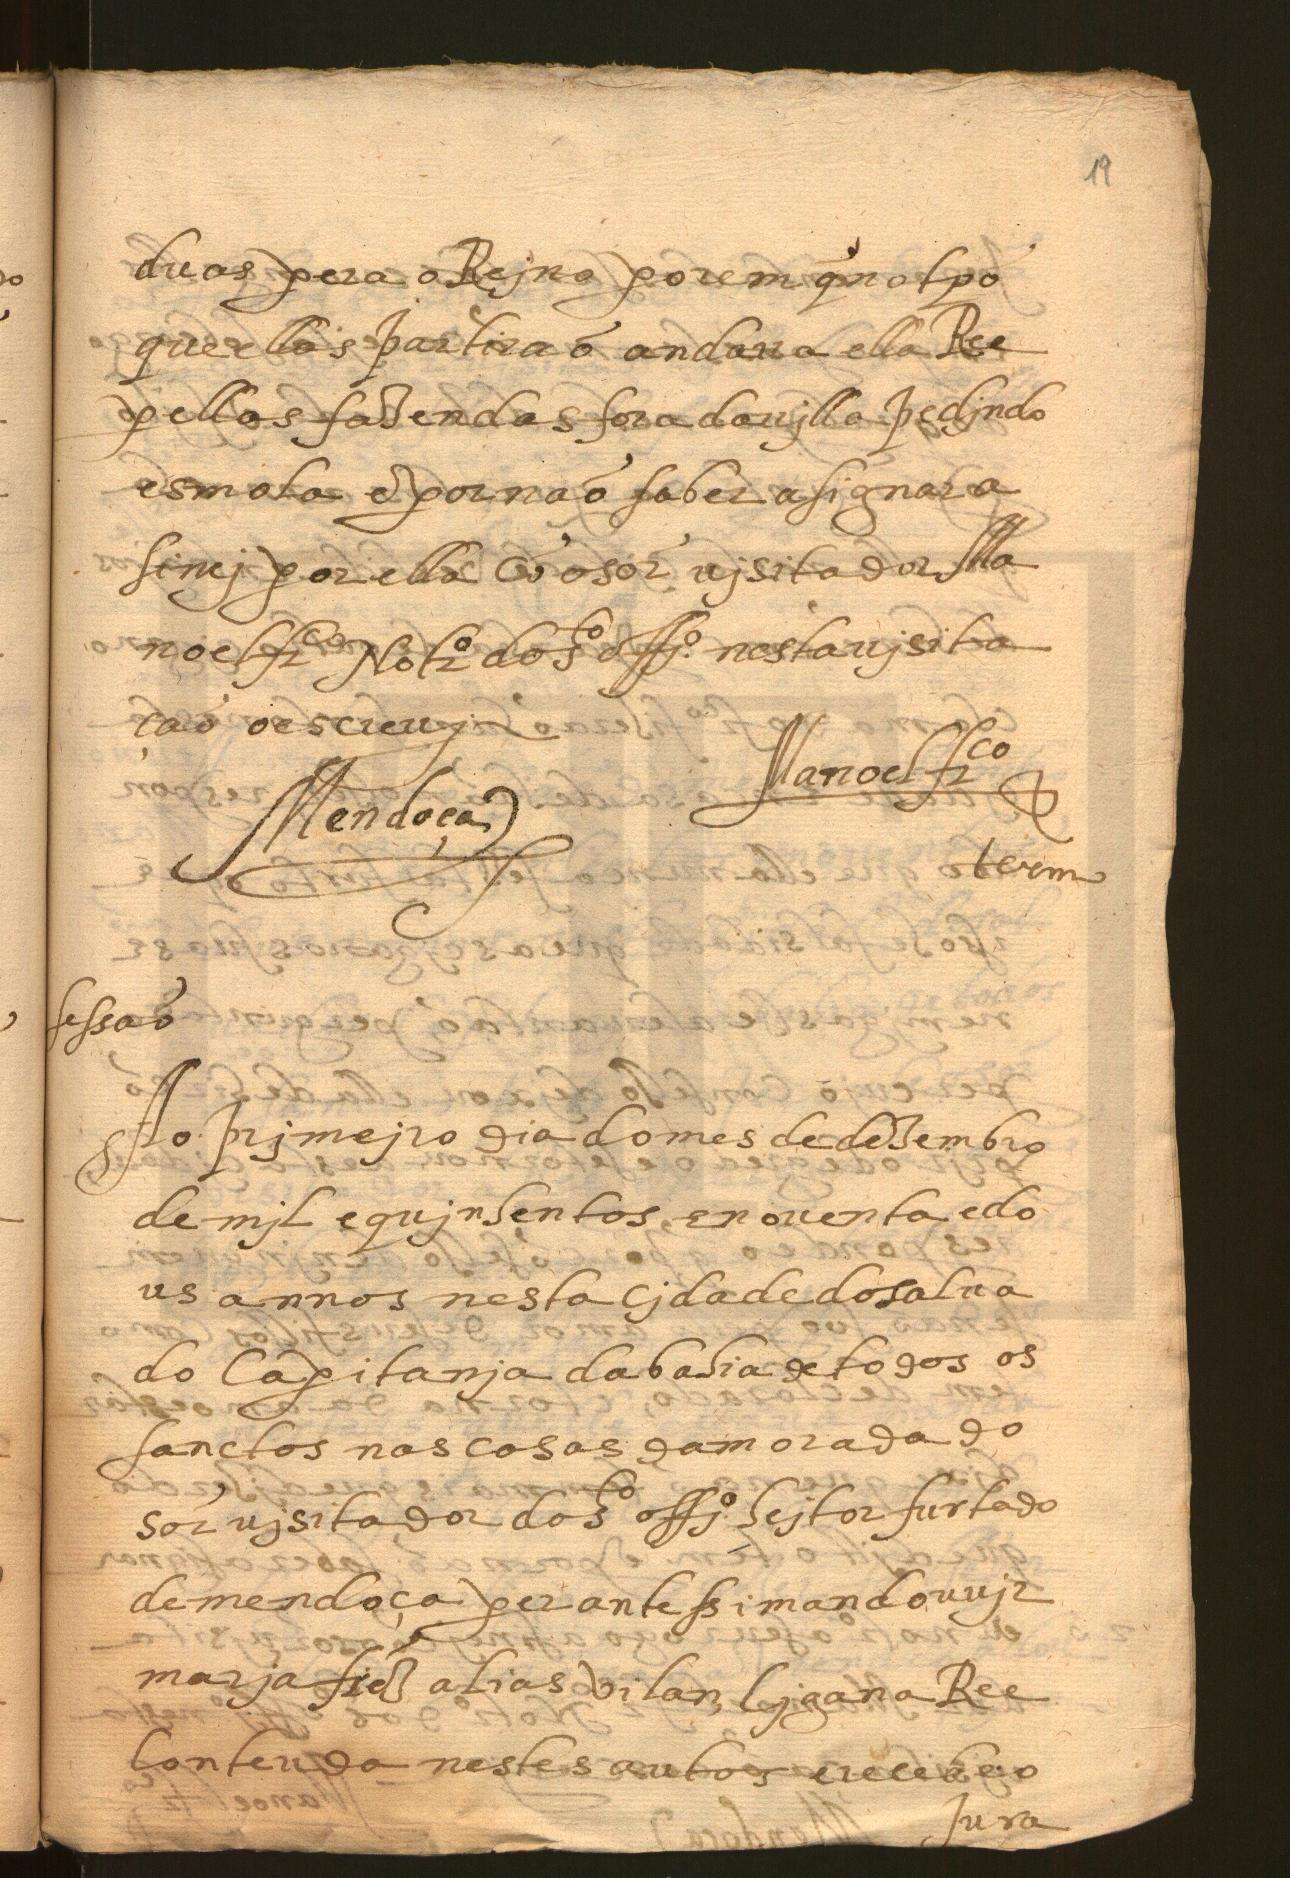 19
duas pera o Rejno porem q̃ no tpõ
que ellas partiraõ andaua ella Ree
pellas fazendas fora da vjlla pedjndo
esmola e por naõ saber asignar a
sinej por ella cõ o sõr vjsitador Ma
noel frco Notro do sto offjo nesta vjsita
çaõ o escrevj
Mendoça
Manoel frco
term
sessaõ
Ao prjmejro dia do mes de dezembro
de mjl e qujnhentos, e nouenta e do
us annos nesta Cjdade do salua
do Capitanja da bahia de todos os
sanctos nas casas da morada do
sõr vjsitador do sto offjo hejtor furtado
de mendoça perante ssi mandou vjr
marja frz alias violan, Cjgana Ree
Contenda nestes autos e recebeo
Jura